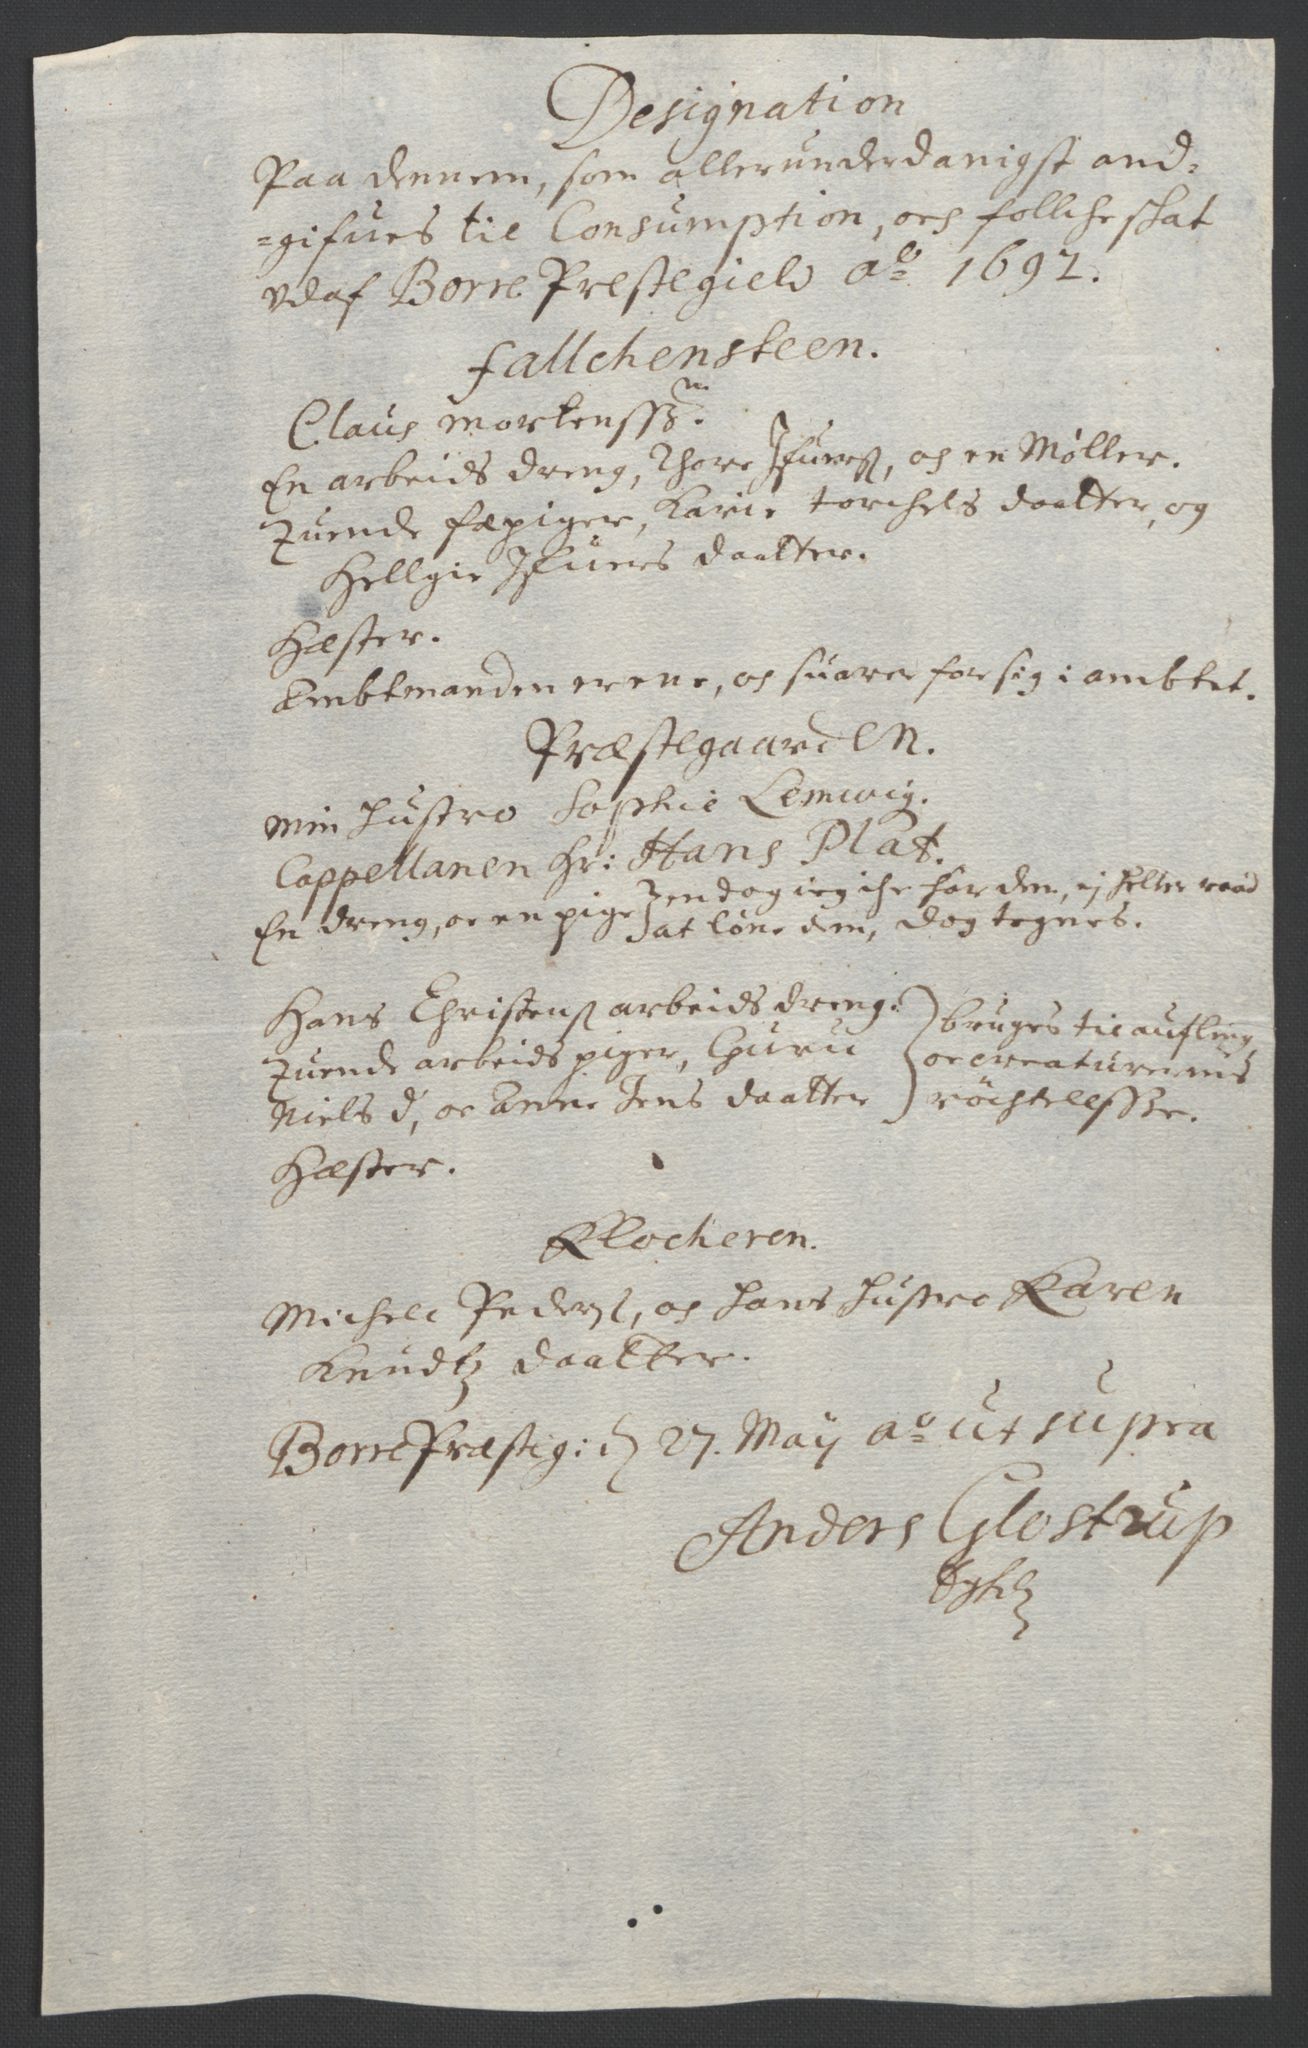 Designation
Paa dennem, som allerunderdanigst and=
=gifues til Consumption, och follche skat
udaf Borre Prestegield aō 1692.
Fallchensteen.
Claus Mortenssøn.
En arbeids dreng, Thore Ifuerß, os en Møller.
Tuende fæpiger, Karie Torchels daatter, og
Hellgie Ifuers daatter.
Hæster.
Ambtmanden er ene, os suarer for sig i ambtet.
Præstegaarden.
Min hustro Sophie Lemwig.
Cappellanen Hr: Hans Plat.
En dreng, oc en pige } endog ieg iche har dem, ej heller raad
at løne dem, dog tegnes.
Hans Christenß arbeids dreng.
Tuende arbeids piger, Guru
Niels d, oc Anne Jens daatter
} bruges til aufling
oc creaturernis
röchtelsse.
Hæster.
Klocheren.
Michell Pederß, os hans hustro Karen
Knudtz daatter.
Borre Præstig: d 27. Maÿ aō ut supra
Anders Glostrup